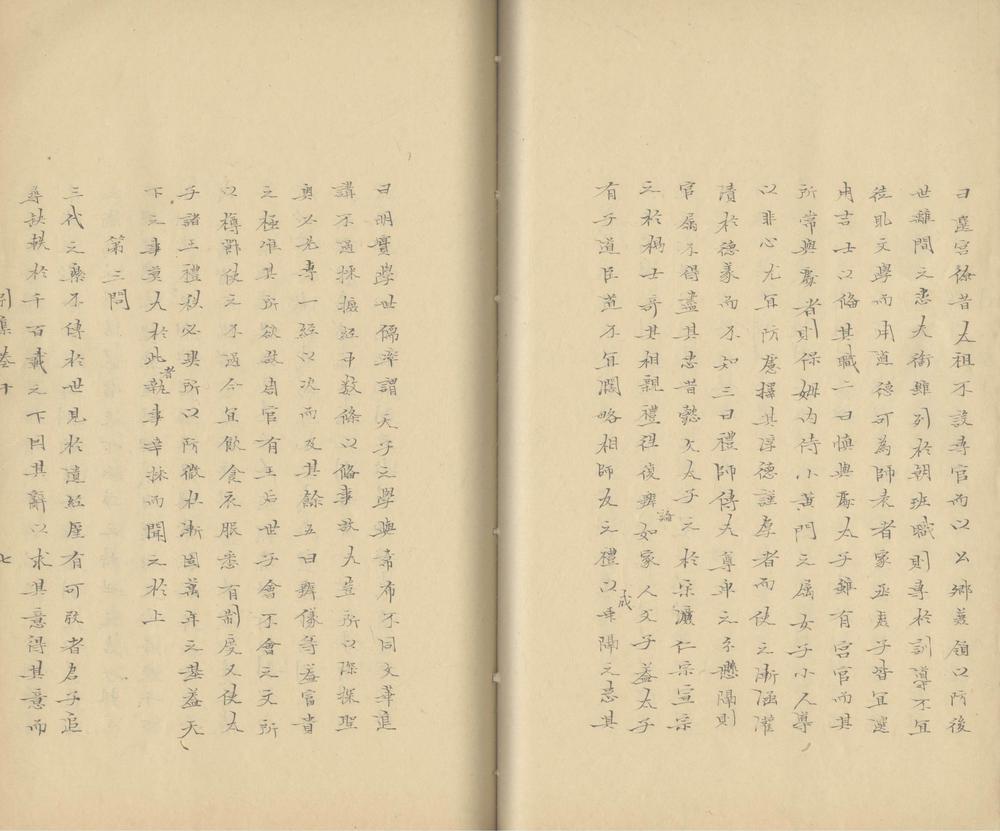 曰選宮僚昔太祖不設專官而以公卿兼領以防後
世離間之患大銜雖列於朝班職則專於訓導不宜
徒取文學而用道德可為師表者家丞庶子皆宜選
用吉士以脩其職二曰慎與處太子雖有宮官而其
所常與處者則保姆內侍小黃門之屬女子小人導
以非心尤宜防處擇其淳德謹厚者而使之漸涵灌
漬於德義而不知三曰禮師傅夫尊卑之分懸隔則
官屬不得盡其忠昔懿文太子之於宋濂仁宗宣宗
之於楊士奇其相親禮往復辨論如家人父子蓋太子
有子道臣道不宜闊略相師友之禮以成再隔之患其
曰明實學世儒率謂天子之學與韋布不同文華進
講不過採摭經中數條以備事故夫豈所以深探聖
奧必先專一經以次而及其餘五曰辨儀等蓋富貴
之極惟其所欲故周官有王后世子會不會之文所
以樽節使之不過今宜飲食衣服悉有制度又使太
子諸王禮秩必異所以防微杜漸固萬年之基蓋天
下之事莫大於此者執事幸採而聞之於上
第三問
三代之樂不傳於世見於遺經厪有可攷者君子追
尋缺軼於千百載之下因其辭以求其意得其意而
別集卷十 七